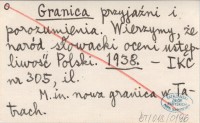 Granica przyjaźni i
porozumienia. Wierzymy, że
naród słowacki oceni ustęp
liwość Polski. 1938. – IKC
nr 305, il.
M. in. nowa granica w Ta-
trach.